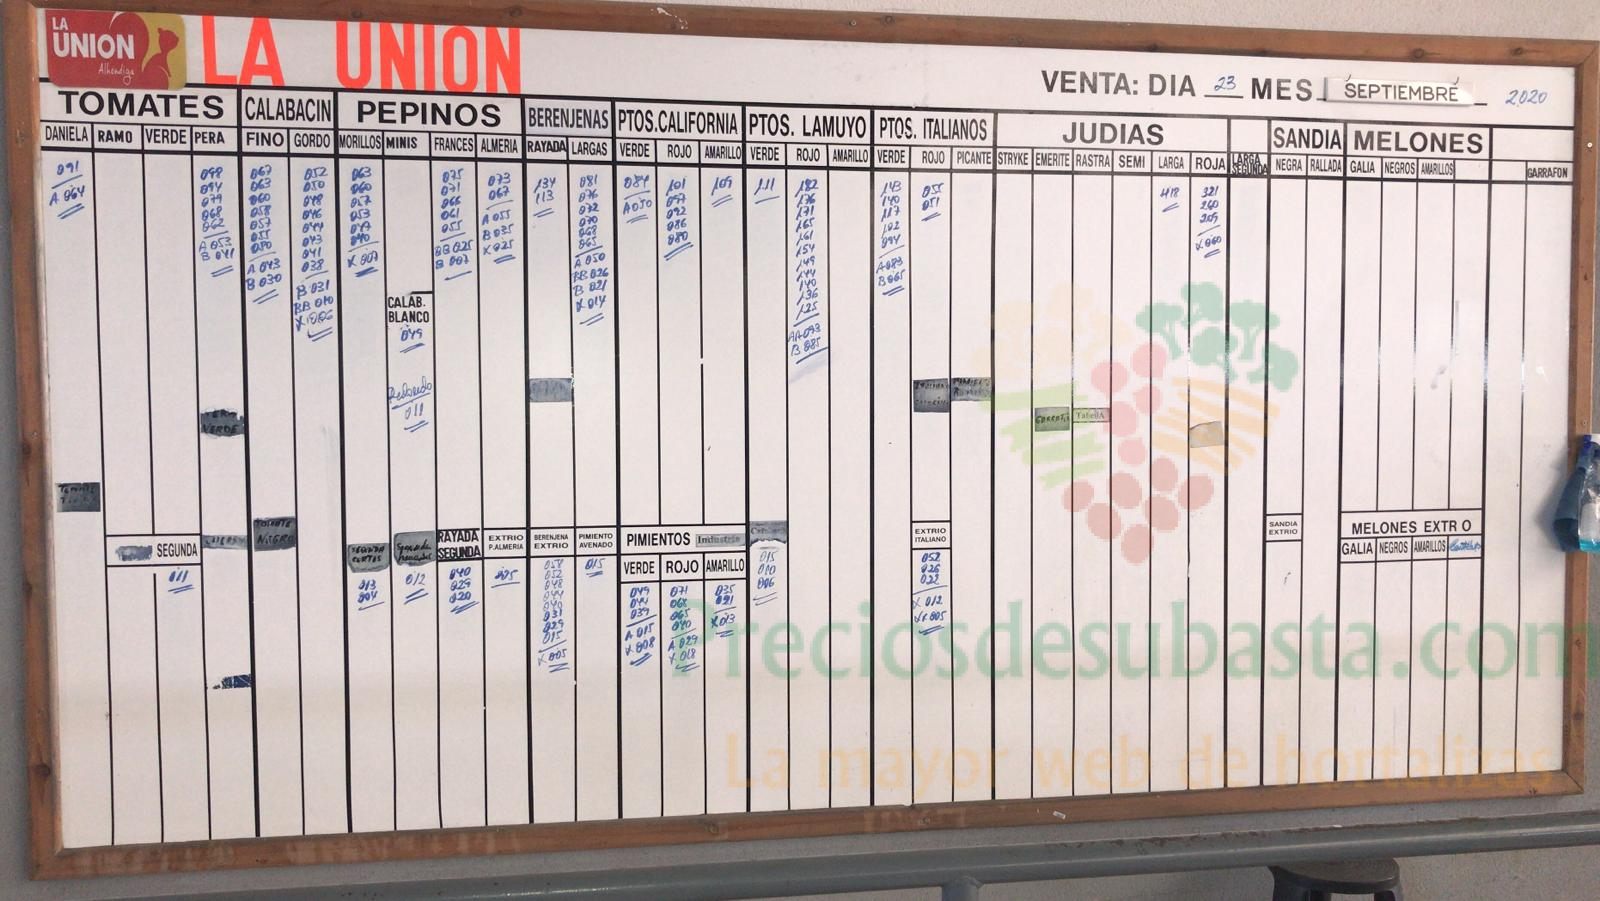 LA
UNION
Alhóndiga
LA UNION
VENTA: DIA 23 MES SEPTIEMBRE 2020
TOMATES CALABACIN PEPINOS BERENJENAS PTOS.CALIFORNIA PTOS. LAMUYO PTOS. ITALIANOS JUDIAS SANDIA MELONES
DANIELA RAMO VERDE PERA FINO GORDO MORILLOS MINIS FRANCES ALMERIA RAYADA LARGAS VERDE ROJO AMARILLO VERDE ROJO AMARILLO VERDE ROJO PICANTE STRYKE EMERITE RASTRA SEMI LARGA ROJA LARGA SEGUNDA NEGRA RALLADA GALIA NEGROS AMARILLOS GARRAFON
091
A 064
098
094
079
068
062
A 053
B 041
067
063
060
058
057
055
050
A 043
B 030
052
050
048
046
044
043
041
038
B 031
BB 010
X 006
063
060
057
053
047
040
X 007
CALAB.
BLANCO
049
Redondo
011
075
071
066
061
055
BB 025
B 007
073
067
A 055
B 035
X 025
134
113
081
076
072
070
068
065
A 050
BB 026
B 021
X 014
084
A 050
101
097
092
086
080
109
111
182
176
171
165
161
154
149
144
140
136
125
AA 093
B 085
143
140
117
102
094
A 083
B 065
055
051
418
321
260
209
X 060
VERDE
TabellA
SEGUNDA
011
NEGRO
013
004
012
RAYADA
SEGUNDA
040
029
020
EXTRIO
P.ALMERIA
005
BERENJENA
EXTRIO
052
048
040
031
029
015
X 005
PIMIENTO
AVENADO
015
PIMIENTOS Industria
VERDE ROJO AMARILLO
049
044
039
A 015
X 008
071
065
040
A 029
X 018
035
021
X 013
015
010
006
EXTRIO
ITALIANO
052
026
022
X 012
XX 005
SANDIA
EXTRIO
MELONES EXTR O
GALIA NEGROS AMARILLOS
Preciosdesubasta.com
La mayor web de hortalizas